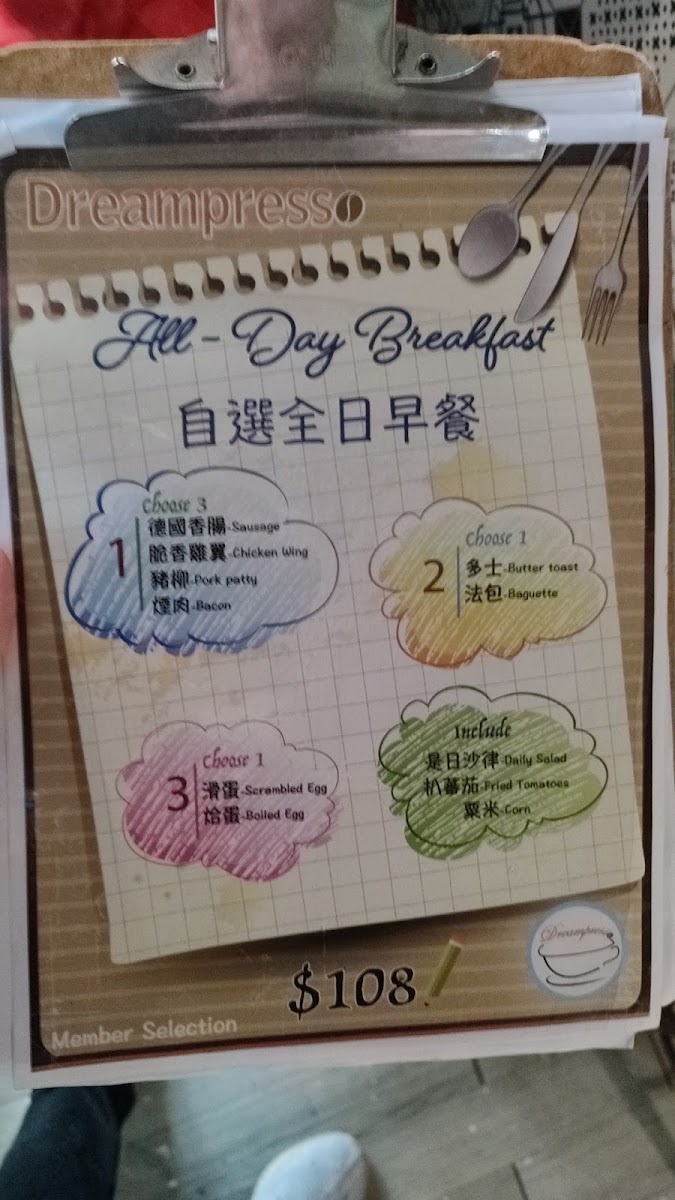 Dreampresso
All-Day Breakfast
自選全日早餐
Choose 3
1
德國香腸-Sausage
脆香雞翼-Chicken Wing
豬柳-Pork patty
煙肉-Bacon
Choose 1
2
多士-Butter toast
法包-Baguette
Choose 1
3
滑蛋-Scrambled Egg
烚蛋-Boiled Egg
Include
是日沙律-Daily Salad
扒蕃茄-Fried Tomatoes
粟米-Corn
$108
Dreampresso
Member Selection